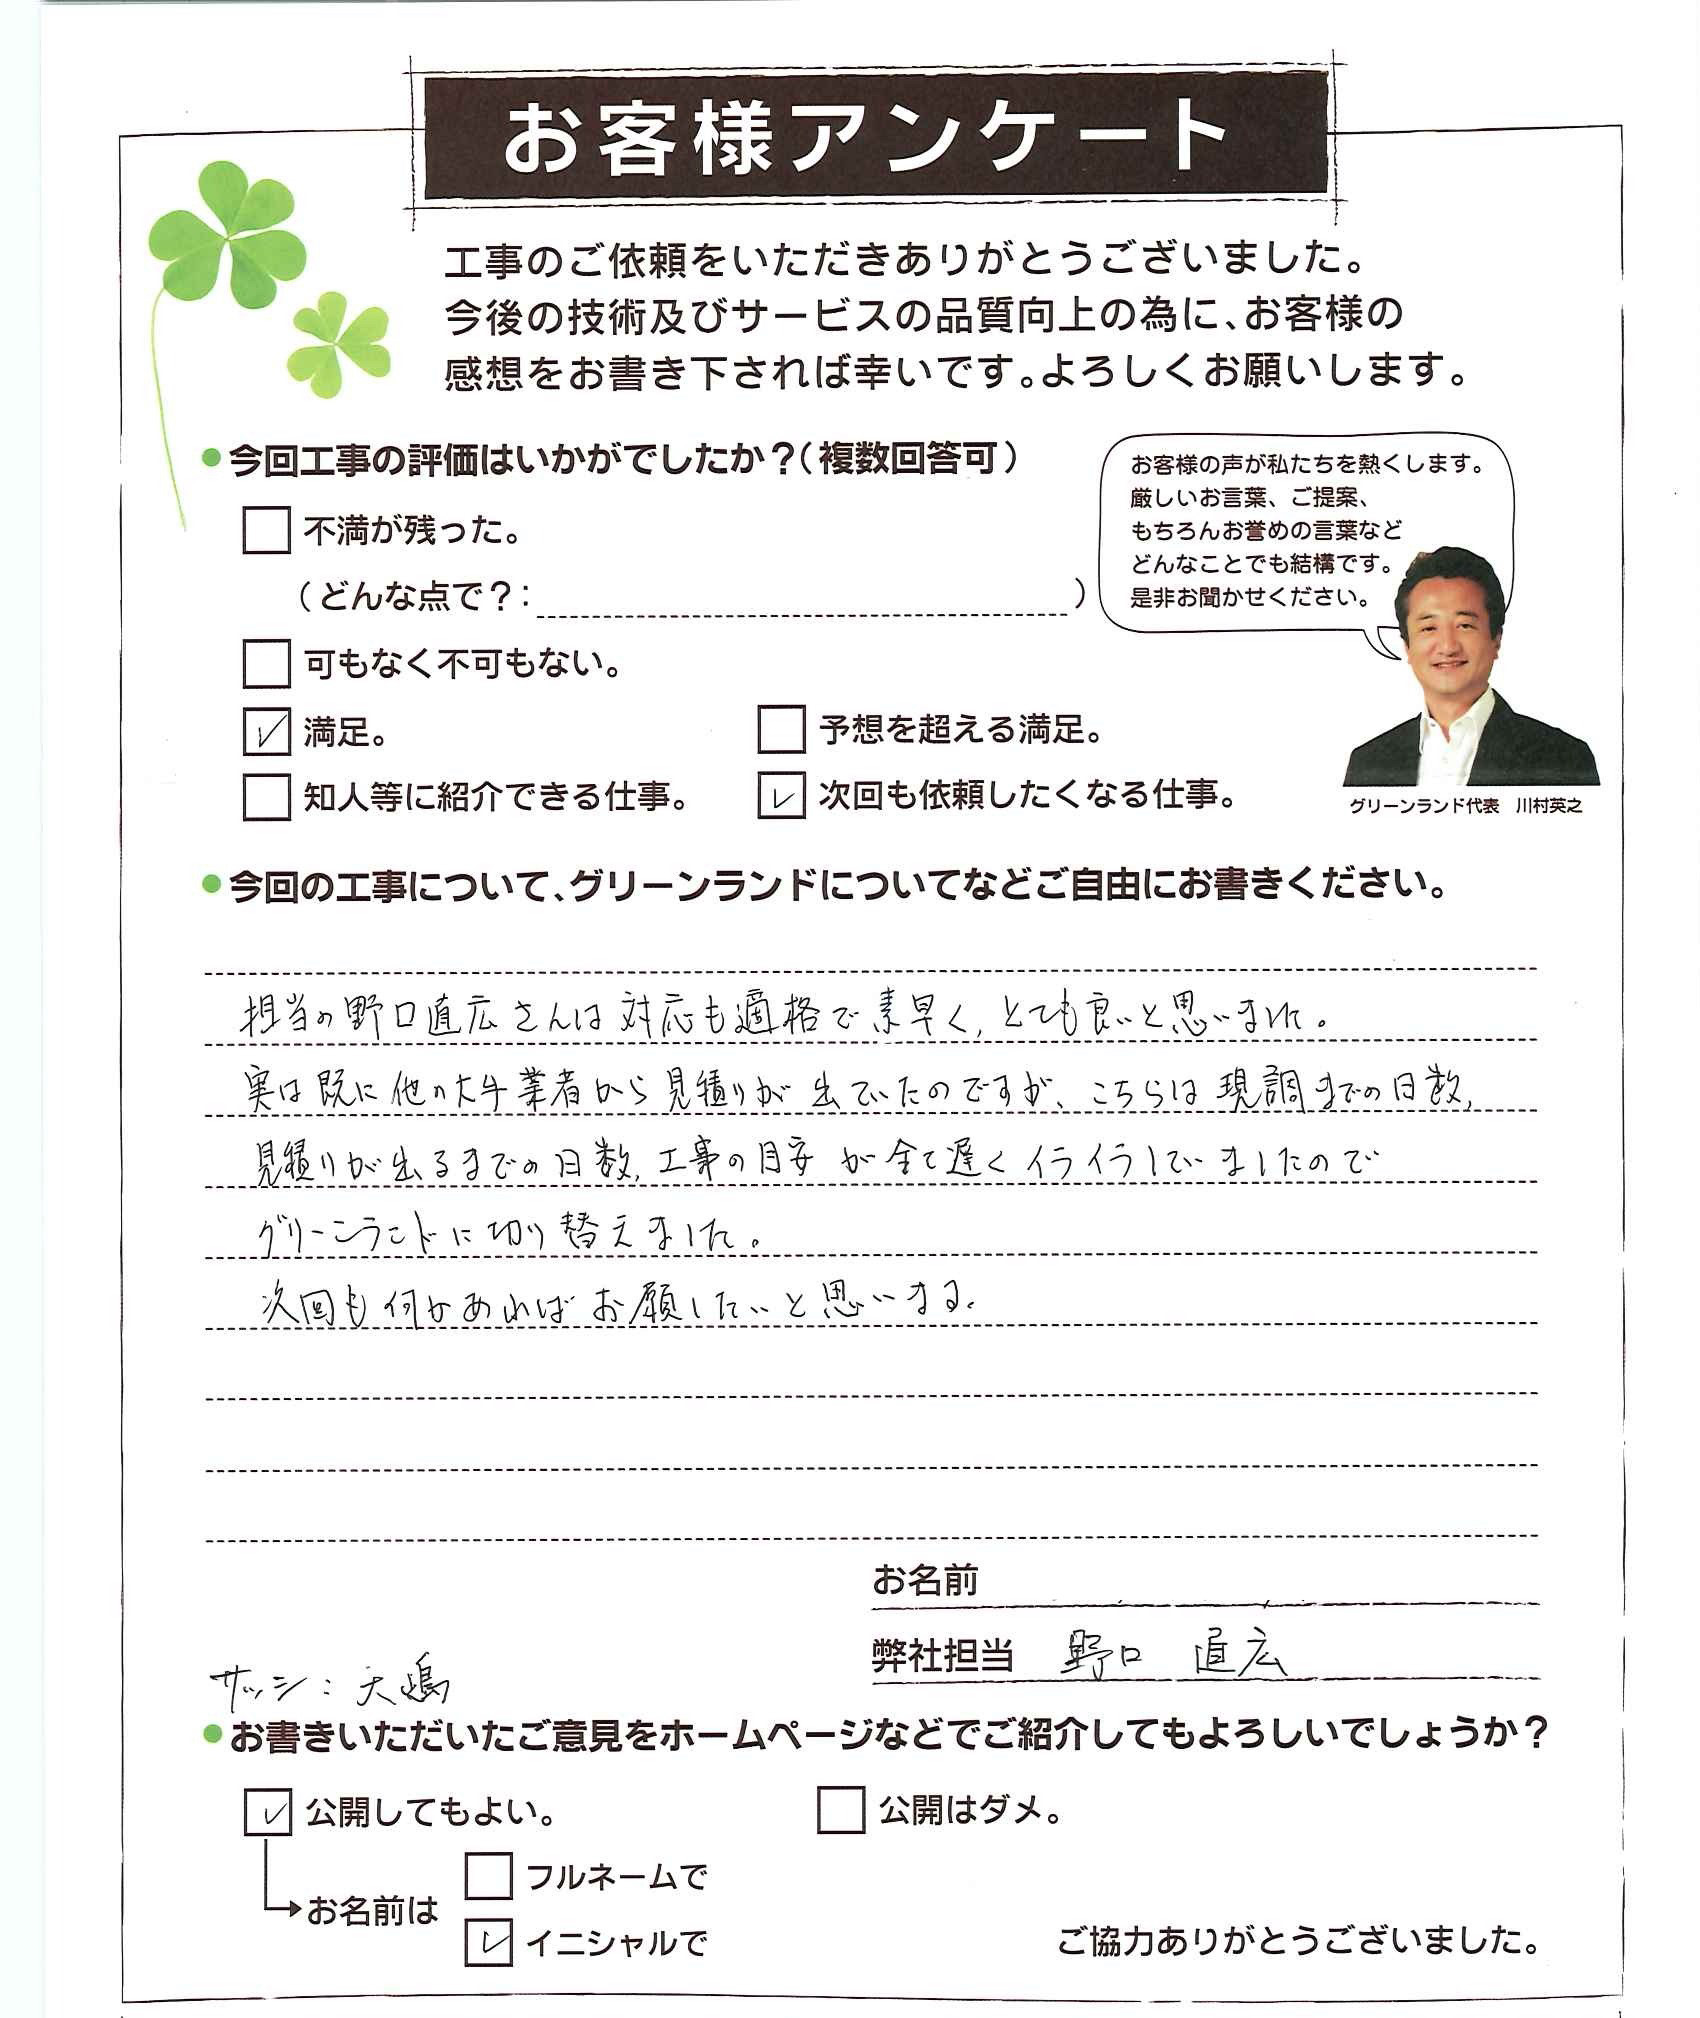 お客様アンケート
工事のご依頼をいただきありがとうございました。
今後の技術及びサービスの品質向上の為に、お客様の
感想をお書き下されば幸いです。よろしくお願いします。
●今回工事の評価はいかがでしたか？（複数回答可）
不満が残った。
（どんな点で？：　）
可もなく不可もない。
満足。
予想を超える満足。
知人等に紹介できる仕事。
次回も依頼したくなる仕事。
お客様の声が私たちを熱くします。
厳しいお言葉、ご提案、
もちろんお誉めの言葉など
どんなことでも結構です。
是非お聞かせください。
グリーンランド代表　川村英之
●今回の工事について、グリーンランドについてなどご自由にお書きください。
担当の野口直広さんは対応も適格で素早く、とても良いと思いました。
実は既に他の大手業者から見積りが出ていたのですが、こちらは現調までの日数、
見積りが出るまでの日数、工事の目安が全て遅くイライラしていましたので
グリーンランドに切り替えました。
次回も何かあればお願いしたいと思います。
お名前
弊社担当　野口　直広
サッシ：大嶋
●お書きいただいたご意見をホームページなどでご紹介してもよろしいでしょうか？
公開してもよい。
公開はダメ。
お名前は
フルネームで
イニシャルで
ご協力ありがとうございました。